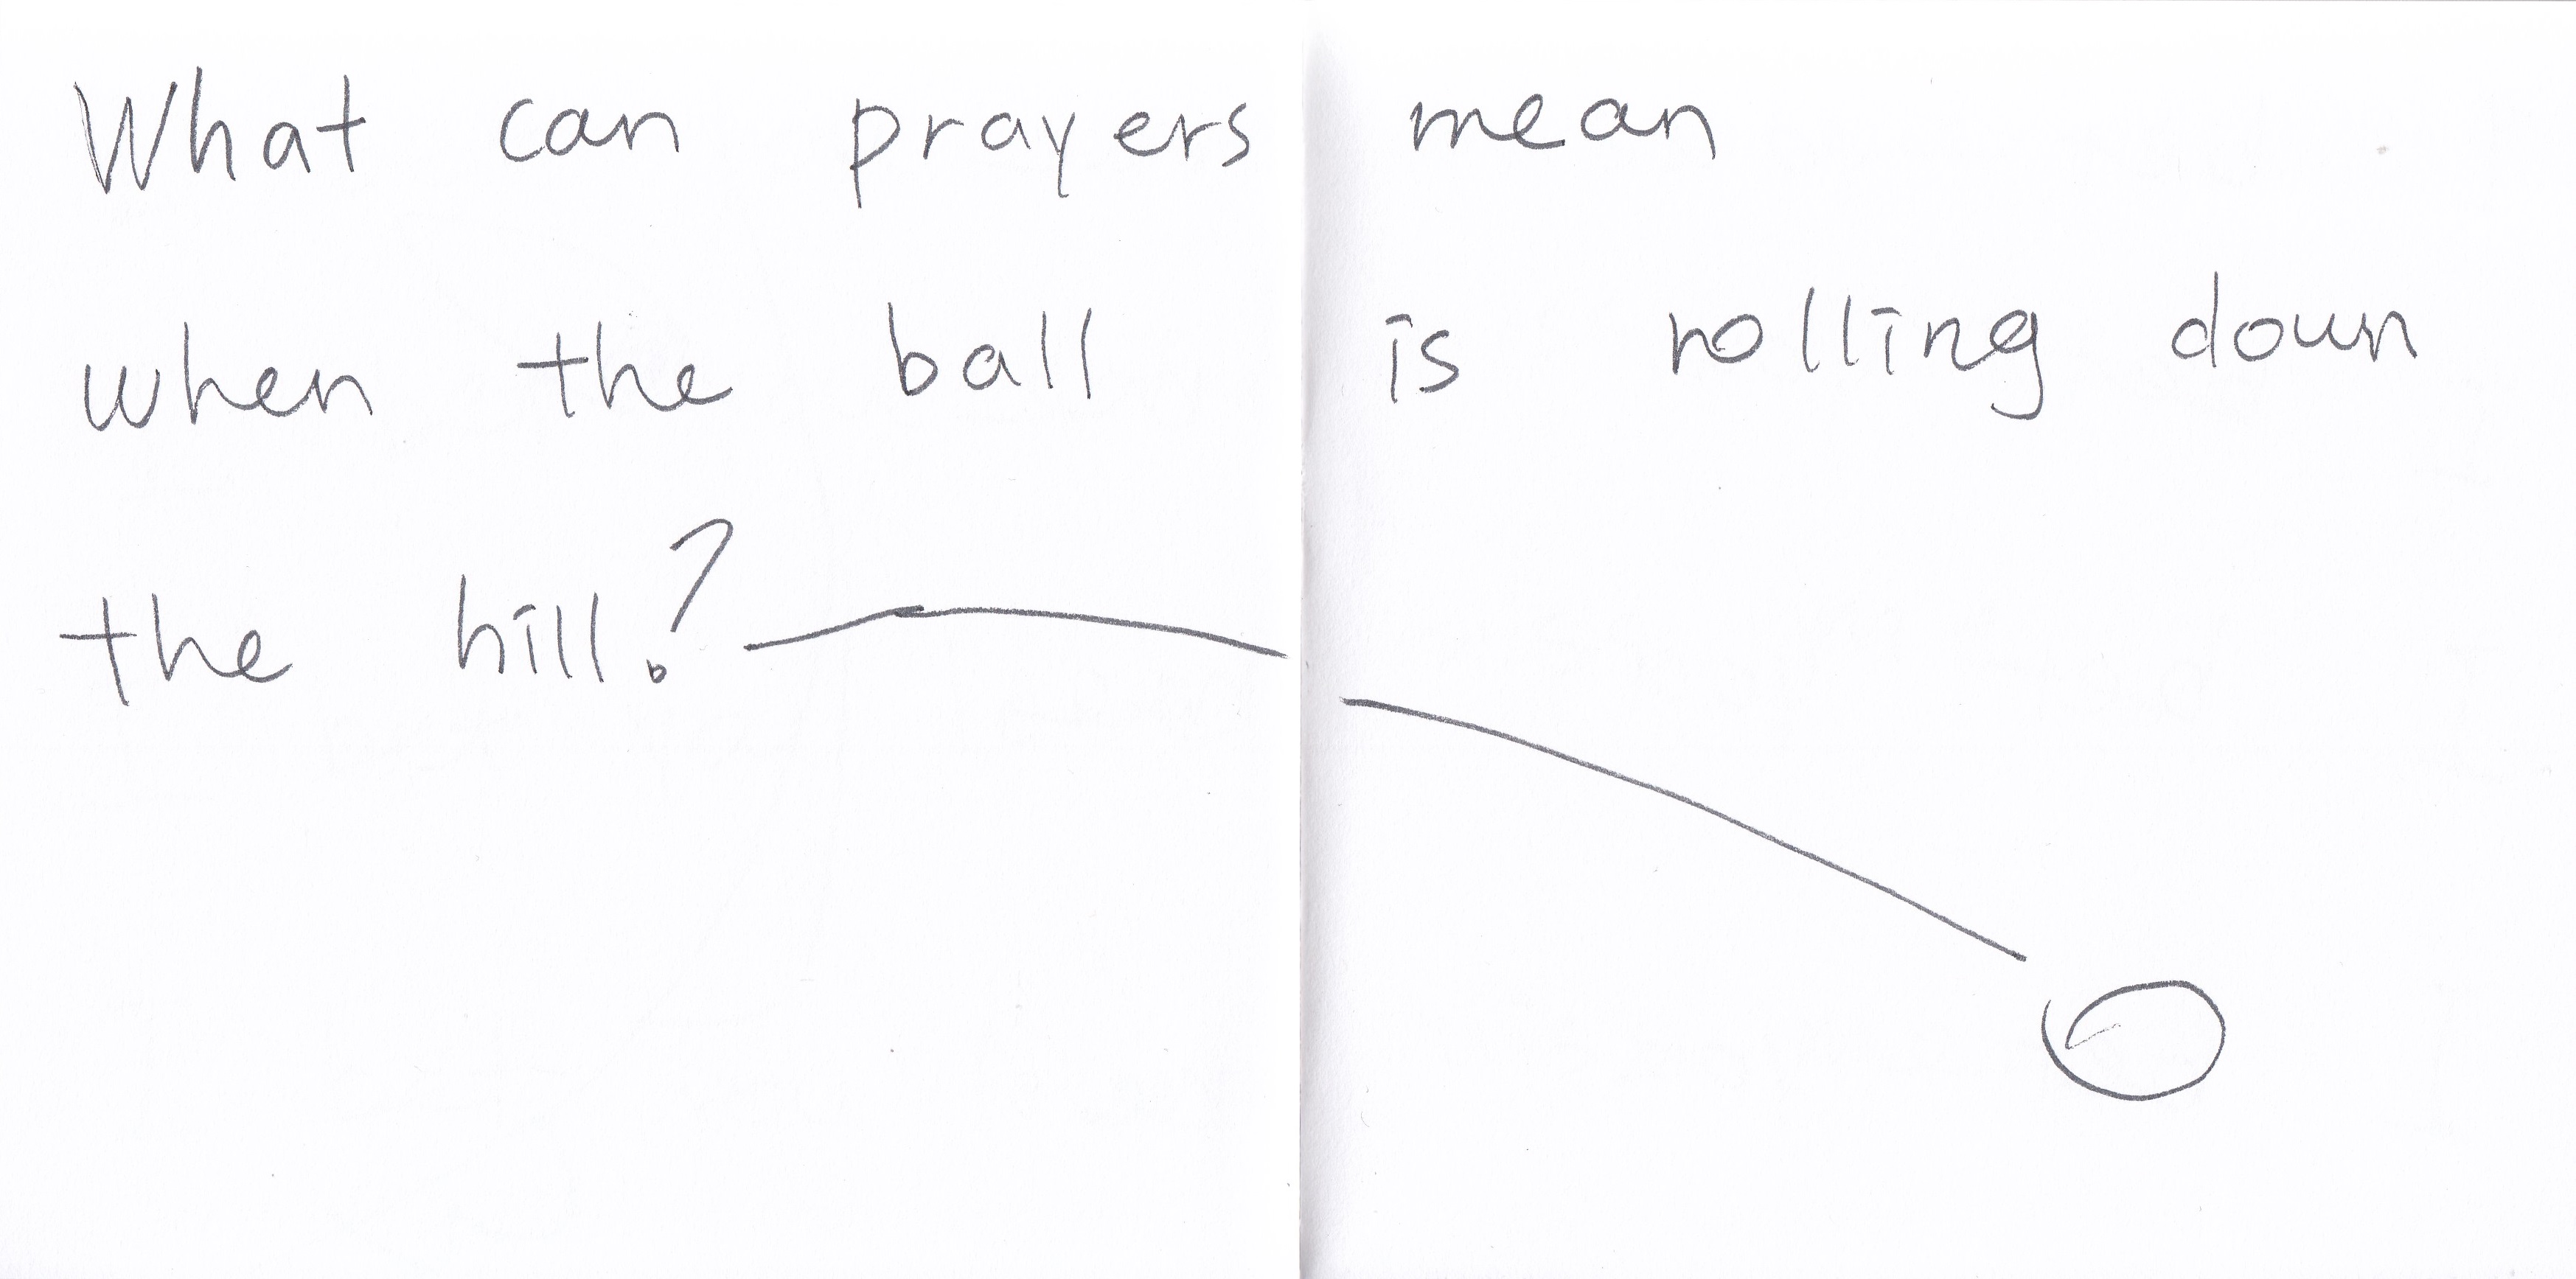 What can prayers mean
when the ball is rolling down
the hill?